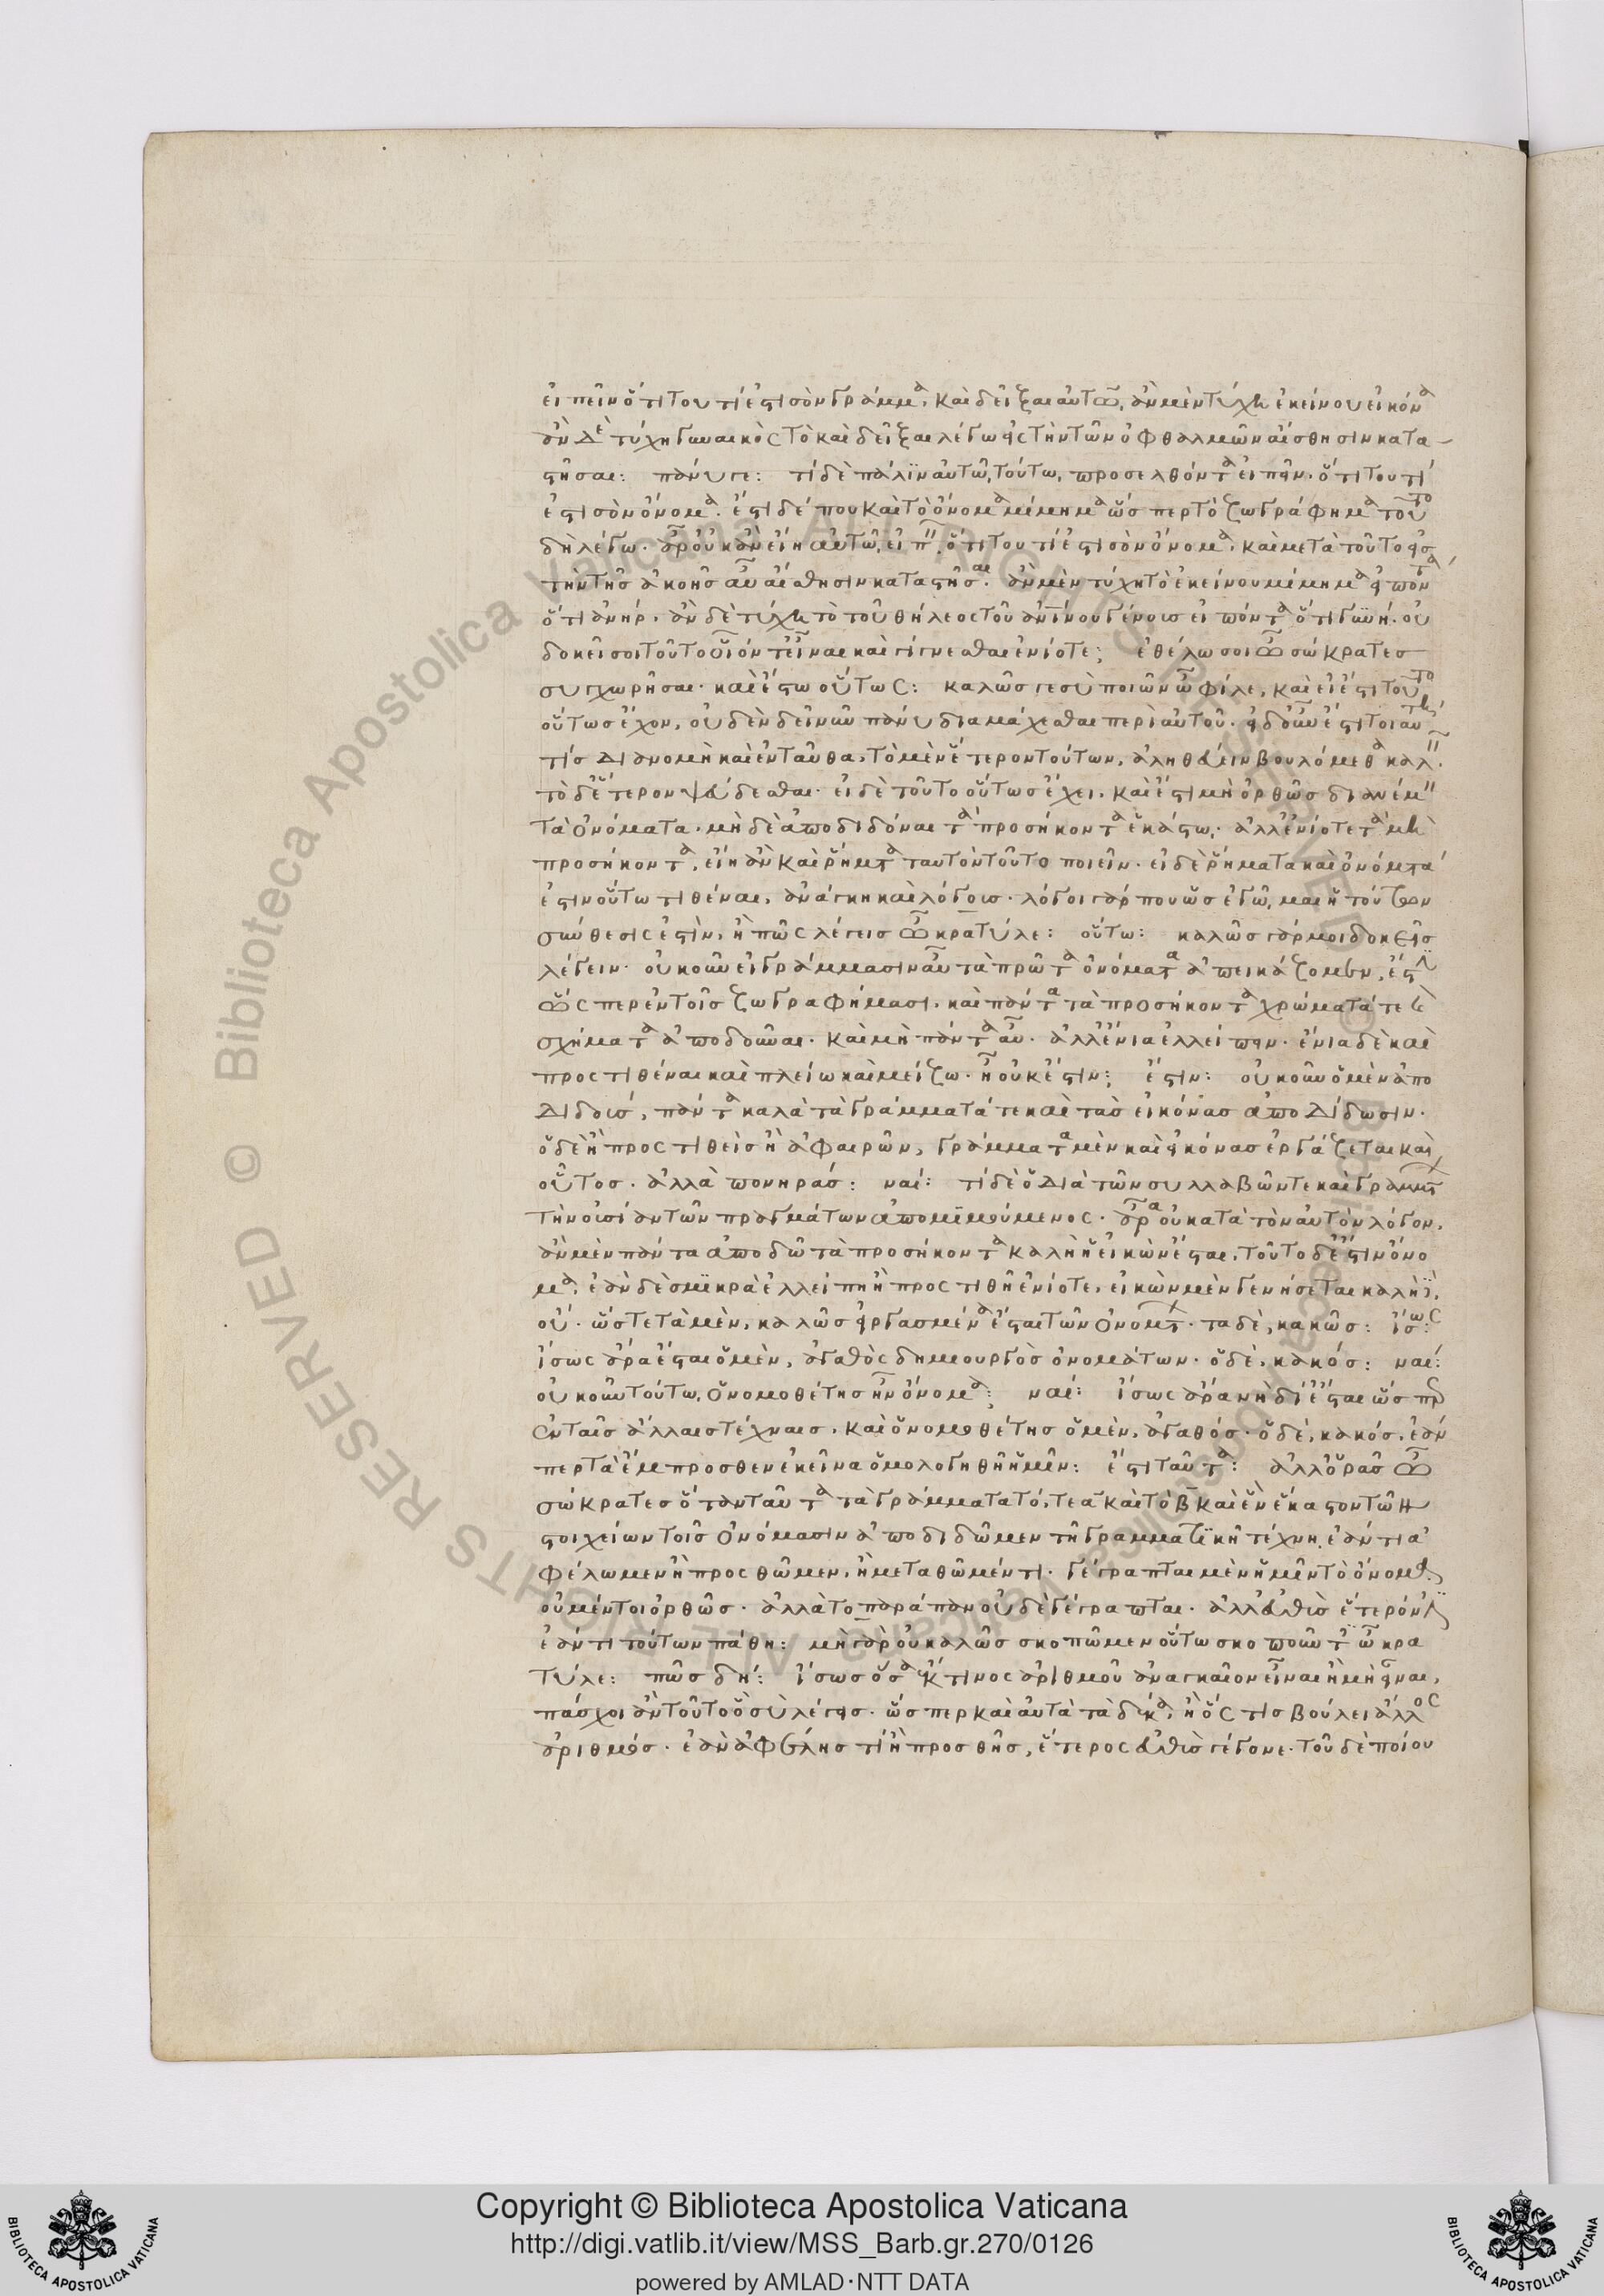 εἰπεῖν ὅτι τουτί ἐστι σὸν γράμμα. καὶ δεῖξαι αὐτῶ, ἂν μὲν τύχη ἐκείνου εἰκόνα
ἂν δὲ τύχη γυναικὸς τὸ καὶ δεῖξαι λέγω εἰς τὴν τῶν ὀφθαλμῶν αἴσθησιν κατα
στῆσαι: πάνυ γε: τί δὲ πάλϊν αὐτῶ, τούτω, προσελθόντα εἰπεῖν. ὅτι τουτί
ἐστι σὸν ὄνομα. ἔστι δέ που καὶ τὸ ὄνομα μίμημα ὥσπερ τὸ ζωγράφημα τοῦτο
δὴ λέγω. ἆρ οὐκ ἂν εἴη αὐτῶ, εἰπεῖν. ὅτι τουτί ἐστι σὸν ὄνομα. καὶ μετὰ τοῦτο εἰς
τὴν τῆς ἀκοῆς αὖ αἴσθησιν καταστῆσαι. ἂν μὲν τύχη τὸ ἐκείνου μίμημα εἰπόντα
ὅτι ἀνήρ. ἂν δὲ τύχη τὸ τοῦ θήλεος τοῦ ἀνίνου γένους εἰπόντα ὅτι γυνή. οὐ
δοκεῖ σοι τοῦτο οἷόν τ εἶναι καὶ γίγνεσθαι ἐνίοτε; ἐθέλω σοι ὦ σώκρατες
συγχωρῆσαι. καὶ ἔστω οὕτως: καλῶς γε σὺ ποιῶν ὦ φίλε, καὶ εἰ ἔστι τοῦτο
οὕτως ἔχον, οὐδὲν δεῖ νῦν πάνυ διαμάχεσθαι περὶ αὐτοῦ. εἰ δ οὖν ἔστι τοιαύτη
τίς διανομὴ καὶ ἐνταῦθα. τὸ μὲν ἕτερον τούτων, ἀληθεύειν βουλόμεθα καλεῖν.
τὸ δ ἕτερον ψεύδεσθαι. εἰ δὲ τοῦτο οὕτως ἔχει. καὶ ἔστι μὴ ὀρθῶς διανέμειν
τὰ ὀνόματα. μὴ δὲ ἀποδιδόναι τὰ προσήκοντα ἑκάστω. ἀλλ ἐνίοτε τὰ μὴ
προσήκοντα, εἴη ἂν καὶ ῥήματα ταυτὸν τοῦτο ποιεῖν. εἰ δὲ ῥήματα καὶ ὀνόματα
ἔστιν οὕτω τιθέναι. ἀνάγκη καὶ λόγους. λόγοι γάρ που ὡς ἐγῶμαι ἡ τούτων
σύνθεσίς ἐστιν. ἢ πῶς λέγεις ὦ κρατύλε: οὕτω: καλῶς γάρ μοι δοκεῖς
λέγειν. οὐκοῦν εἰ γράμμασιν αὖ τὰ πρῶτα ὀνόματα ἀπεικάζομεν, ἔστιν
ὥσπερ ἐν τοῖς ζωγραφήμασι. καὶ πάντα τὰ προσήκοντα χρώματά τε καὶ
σχήματα ἀποδοῦναι. καὶ μὴ πάντα αὖ. ἀλλ ἔνια ἐλλείπειν. ἔνια δὲ καὶ
προστιθέναι καὶ πλείω καὶ μείζω. ἢ οὐκ ἔστιν; ἔστιν: οὐκοῦν ὁ μὲν ἀπο
διδοὺς, πάντα καλὰ τὰ γράμματά τε καὶ τὰς εἰκόνας ἀποδίδωσιν.
ὁ δὲ ἢ προστιθεὶς ἢ ἀφαιρῶν, γράμματα μὲν καὶ εἰκόνας ἐργάζεται καὶ
οὗτος. ἀλλὰ πονηράς: ναί: τί δὲ ὁ διὰ τῶν συλλαβῶν τε καὶ γραμμάτων
τὴν οὐσίαν τῶν πραγμάτων ἀπομϊμούμενος. ἆρα οὐ κατὰ τὸν αὐτὸν λόγον.
ἂν μὲν πάντα ἀποδῶ τὰ προσήκοντα καλὴ ἡ εἰκὼν ἔσται. τοῦτο δ ἐστὶν ὄνο
μα. ἐὰν δὲ σμϊκρὰ ἐλλείπη ἢ προστιθῆ ἐνίοτε. εἰκὼν μὲν γενήσεται καλὴ δὲ
οὔ. ὥστε τὰ μὲν, καλῶς εἰργασμένα ἔσται τῶν ὀνομάτων. τὰ δὲ, κακῶς: ἴσως:
ἴσως ἄρα ἔσται ὁ μὲν, ἀγαθὸς δημιουργὸς ὀνομάτων. ὁ δὲ, κακός: ναί:
οὐκοῦν τούτω, ὁ νομοθέτης ἦν ὄνομα; ναί: ἴσως ἄρα νὴ δί ἔσται ὥσπερ
ἐν ταῖς ἄλλαις τέχναις. καὶ ὁ νομοθέτης ὁ μὲν, ἀγαθός. ὁ δὲ, κακός. ἐάν
περ τὰ ἔμπροσθεν ἐκεῖνα ὁμολογηθῆ ἡμῖν: ἔστι ταῦτα: ἀλλ ὁρᾶς ὦ
σώκρατες ὅταν ταῦτα τὰ γράμματα τό, τε α καὶ τὸ β καὶ ἓν ἕκαστον τῶν
στοιχείων τοῖς ὀνόμασιν ἀποδιδῶμεν τῆ γραμματϊκῆ τέχνη. ἐάν τι ἀ
φέλωμεν ἢ προσθῶμεν, ἢ μεταθῶμέν τι. γέγραπται μὲν ἡμῖν τὸ ὄνομα
οὐ μέντοι ὀρθῶς. ἀλλὰ τὸ παράπαν οὐδὲ γέγραπται. ἀλλ εὐθὺς ἕτερόν ἐστιν
ἐάν τι τούτων πάθη: μὴ γὰρ οὐ καλῶς σκοπῶμεν οὕτω σκοποῦντες ὦ κρα
τύλε: πῶς δή: ἴσως ὅσα ἔκ τινος ἀριθμοῦ ἀναγκαῖον εἶναι ἢ μὴ εἶναι,
πάσχοι ἂν τοῦτο ὃ σὺ λέγεις. ὥσπερ καὶ αὐτὰ τὰ δέκα, ἢ ὅςτις βούλει ἄλλος
ἀριθμός. ἐὰν ἀφέλης τί ἢ προσθῆς, ἕτερος εὐθὺς γέγονε. τοῦ δὲ ποίου
Copyright © Biblioteca Apostolica Vaticana
http://digi.vatlib.it/view/MSS_Barb.gr.270/0126
powered by AMLAD·NTT DATA